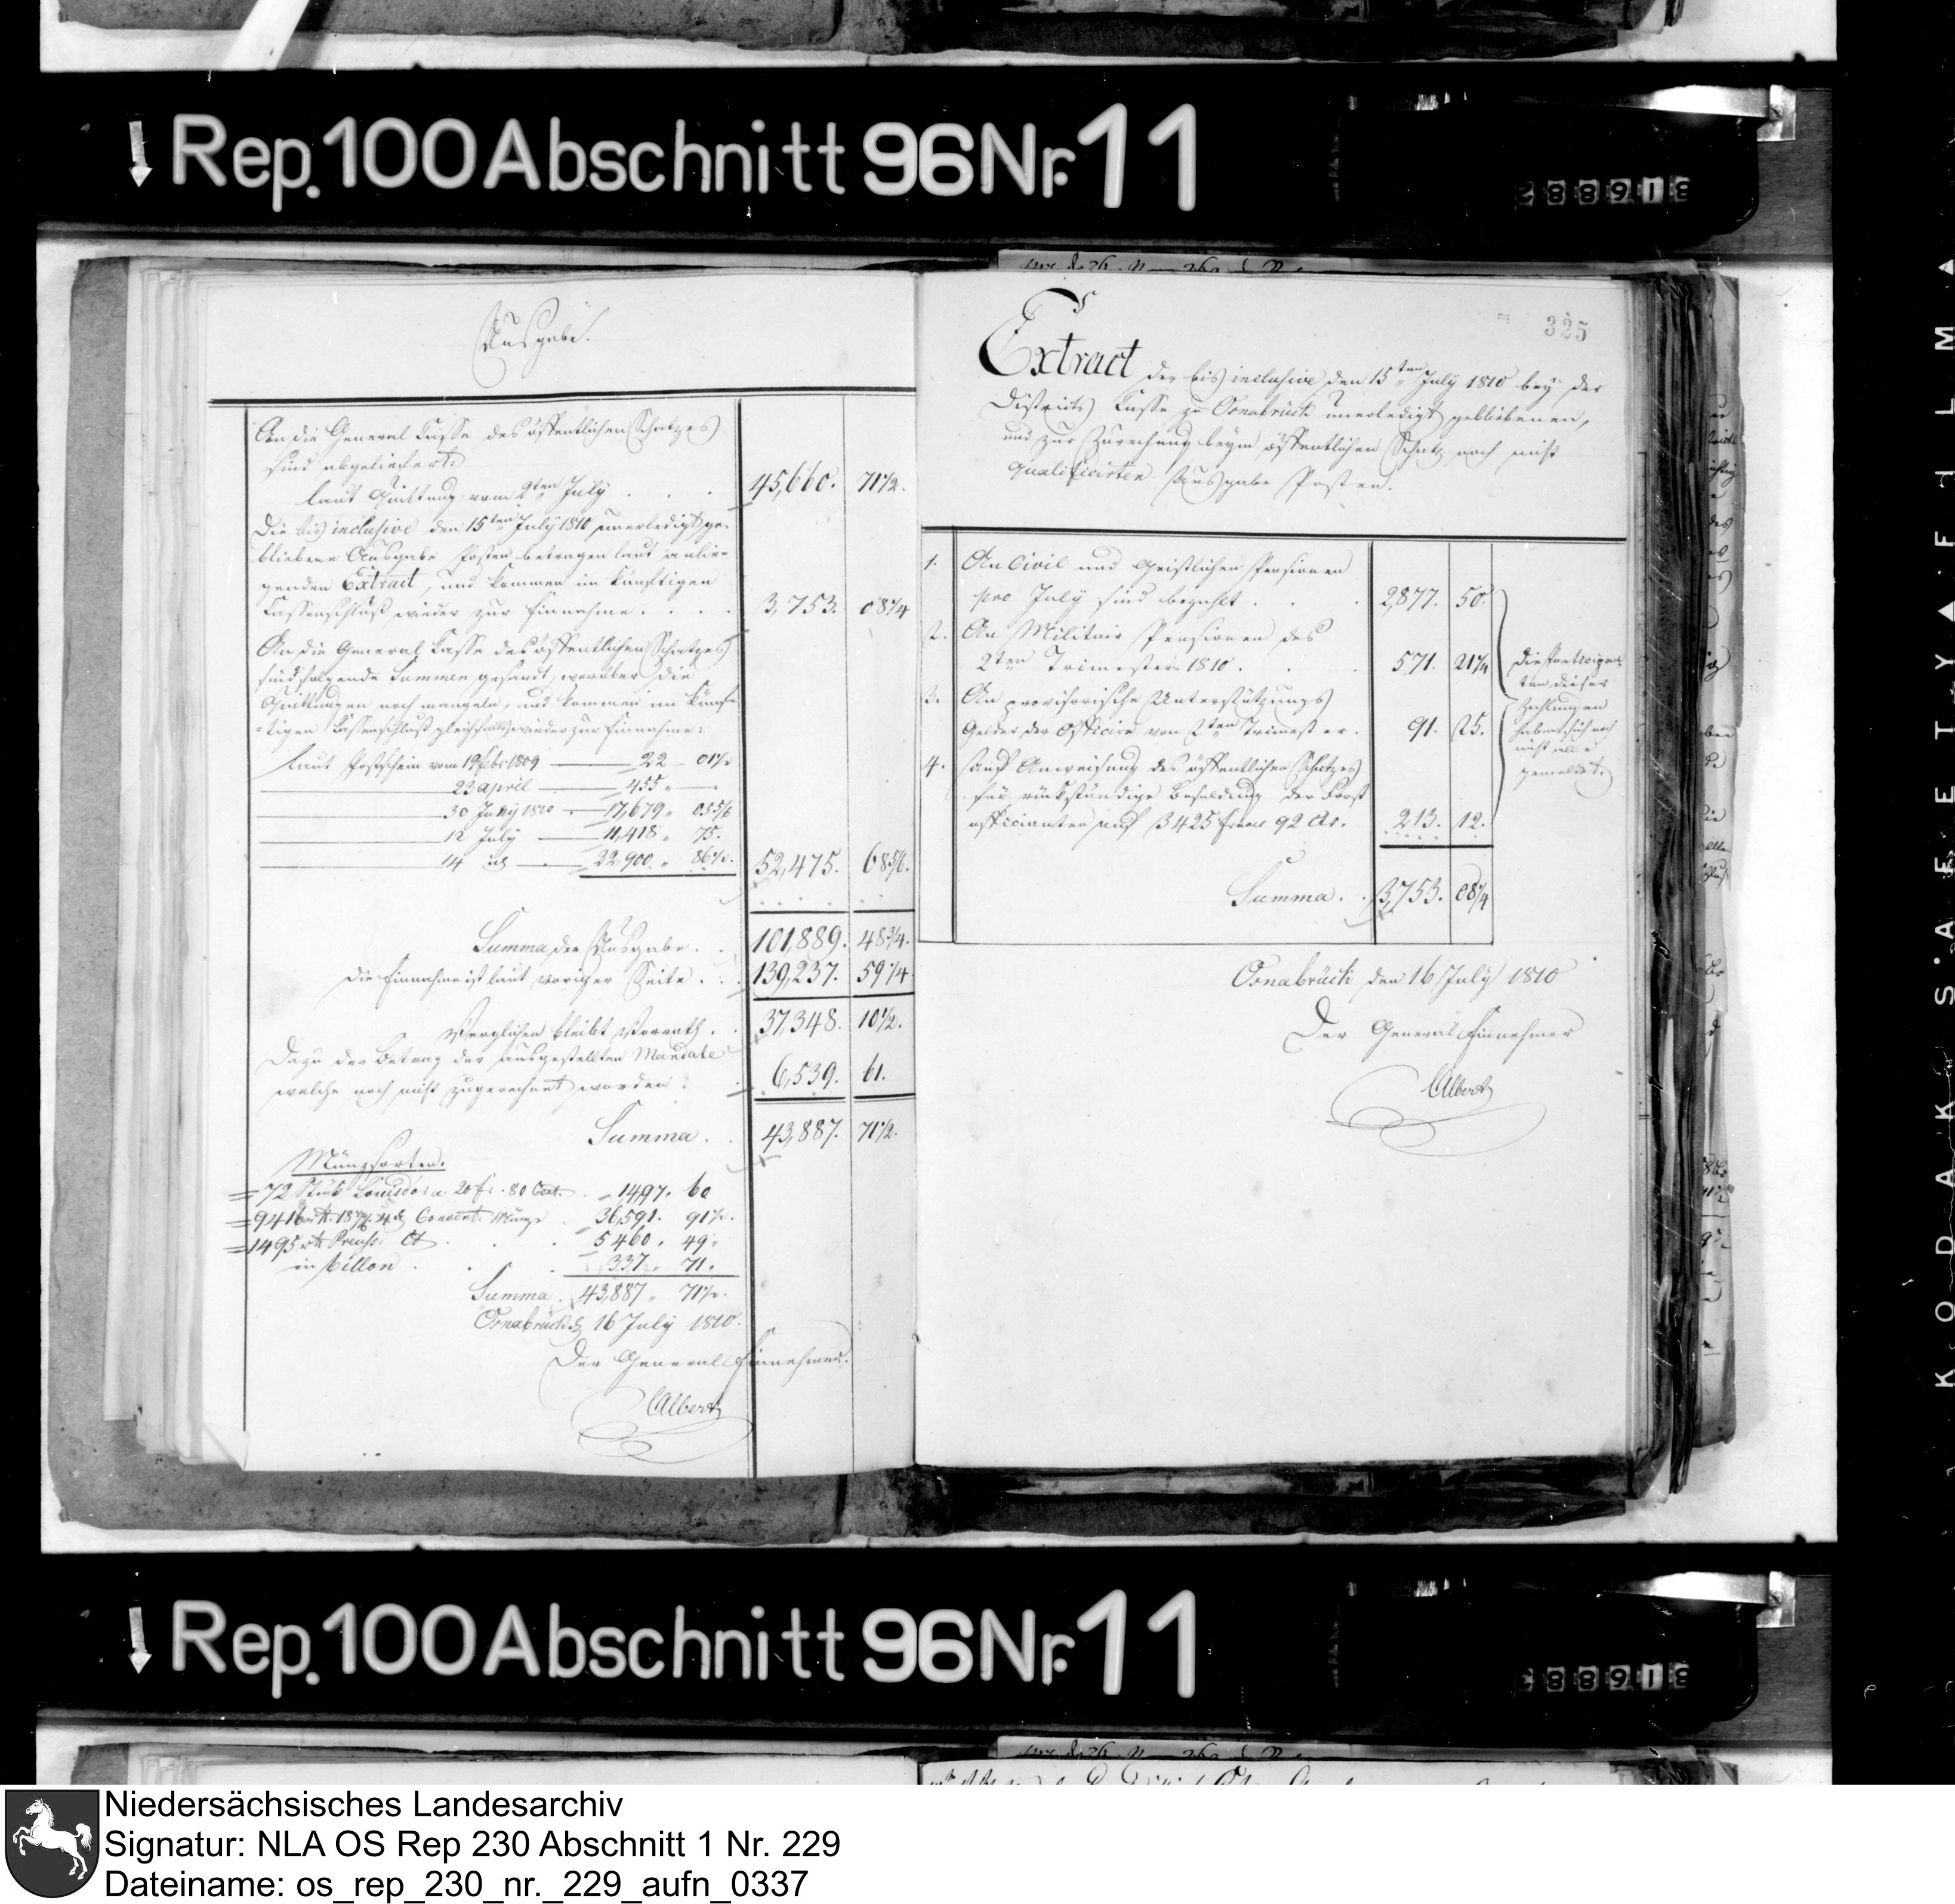 Rep. 100 Abschnitt 96 Nr. 11
Ausgabe.
An die General Casse des öffentlichen Schatzes
sind abgeliefert:
laut Quittung vom 9ten July . . . 45,660. 71 1/2.
Die bis inclusive den 15ten July 1810 unerledigt ge-
bliebene Ausgabe Posten betragen laut anlie-
genden Extract, und kommen im künftigen
Cassenschluß wieder zur Einnahme . . . . 3,753. 08 1/4
An die General Casse des öffentlichen Schatzes
sind folgende Summen gesandt, worüber die
Quittungen noch mangeln, und kommen im künf-
tigen Cassenschluß gleichfalls wieder zur Einnahme:
Laut Postschein vom 19 Febr. 1809 — 22 01 1/2
23 april — 455 " —
30 July 1810 — 17,679 " 05 5/6
12 July — 11,418 " 75.
14 id — 22,900 " 86 1/2. 52,475. 68 5/6.
Summa der Ausgabe . . 101,889. 48 3/4.
Die Einnahme ist laut voriger Seite . . . 139,237. 59 1/4
Verglichen bleibt Vorrath . . 37,348. 10 1/2.
Dazu der Betrag der ausgestellten Mandate
welche noch nicht zugerechnet worden . . 6,539. 61.
Summa . . 43,887. 71 1/2.
Münzsorten.
= 72 Stück Louisdor a 20 fr. 80 Cent. . 1497. 60
= 9416 Convent. Münze . 36,591. 91 1/2.
= 1495 Preuss. Ct . . . 5460. 49.
in Billon . . . 337. 71.
Summa . 43,887 " 71 1/2.
Osnabrück d 16 July 1810.
Der General Einnehmer.
Albers
325
Extract der bis inclusive den 15ten July 1810 bey der
Districts Casse zu Osnabrück unerledigt gebliebenen,
und zur Zurechnung beym öffentlichen Schatz noch nicht
qualificirten Ausgabe Posten.
1. An Civil und Geistlichen Pensionen
pro July sind bezahlt . . . 2,877. 50.
2. An Militair Pensionen des
2ten Trimesters 1810 . . . 571. 21 1/4
3. An provisorische Unterstützungs
Gelder der Officire vom 2ten Trimester . 91. 25.
4. Auf Anweisung des öffentlichen Schatzes
für rückständige Besoldung der Forst
officianten auf 3425 francs 92 Ct. . 213. 12.
Die
ten dieser
Zahlungen
haben sich noch
nicht alle
gemeldet.
Summa . . 3,753. 08 1/4
Osnabrück den 16 July 1810
Der General Einnehmer
Albers
Rep. 100 Abschnitt 96 Nr. 11
KODAK SAFETY FILM
Niedersächsisches Landesarchiv
Signatur: NLA OS Rep 230 Abschnitt 1 Nr. 229
Dateiname: os_rep_230_nr._229_aufn_0337